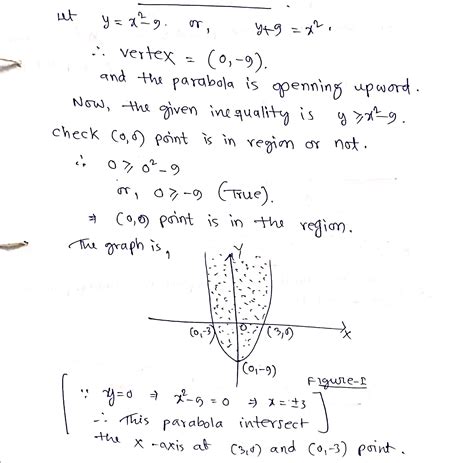 let y = x² - 9. or, y+9 = x².
∴ vertex = (0, -9).
and the parabola is openning upword.
Now, the given inequality is y ⩾ x² - 9.
check (0,0) point is in region or not.
∴ 0 ⩾ 0² - 9
or, 0 ⩾ -9 (True).
⇒ (0,0) point is in the region.
The graph is,
Y
(0,-3) O (3,0) X
(0,-9)
Figure-I
[∵ y=0 ⇒ x²-9 = 0 ⇒ x = ±3
∴ This parabola intersect]
the x-axis at (3,0) and (0,-3) point.